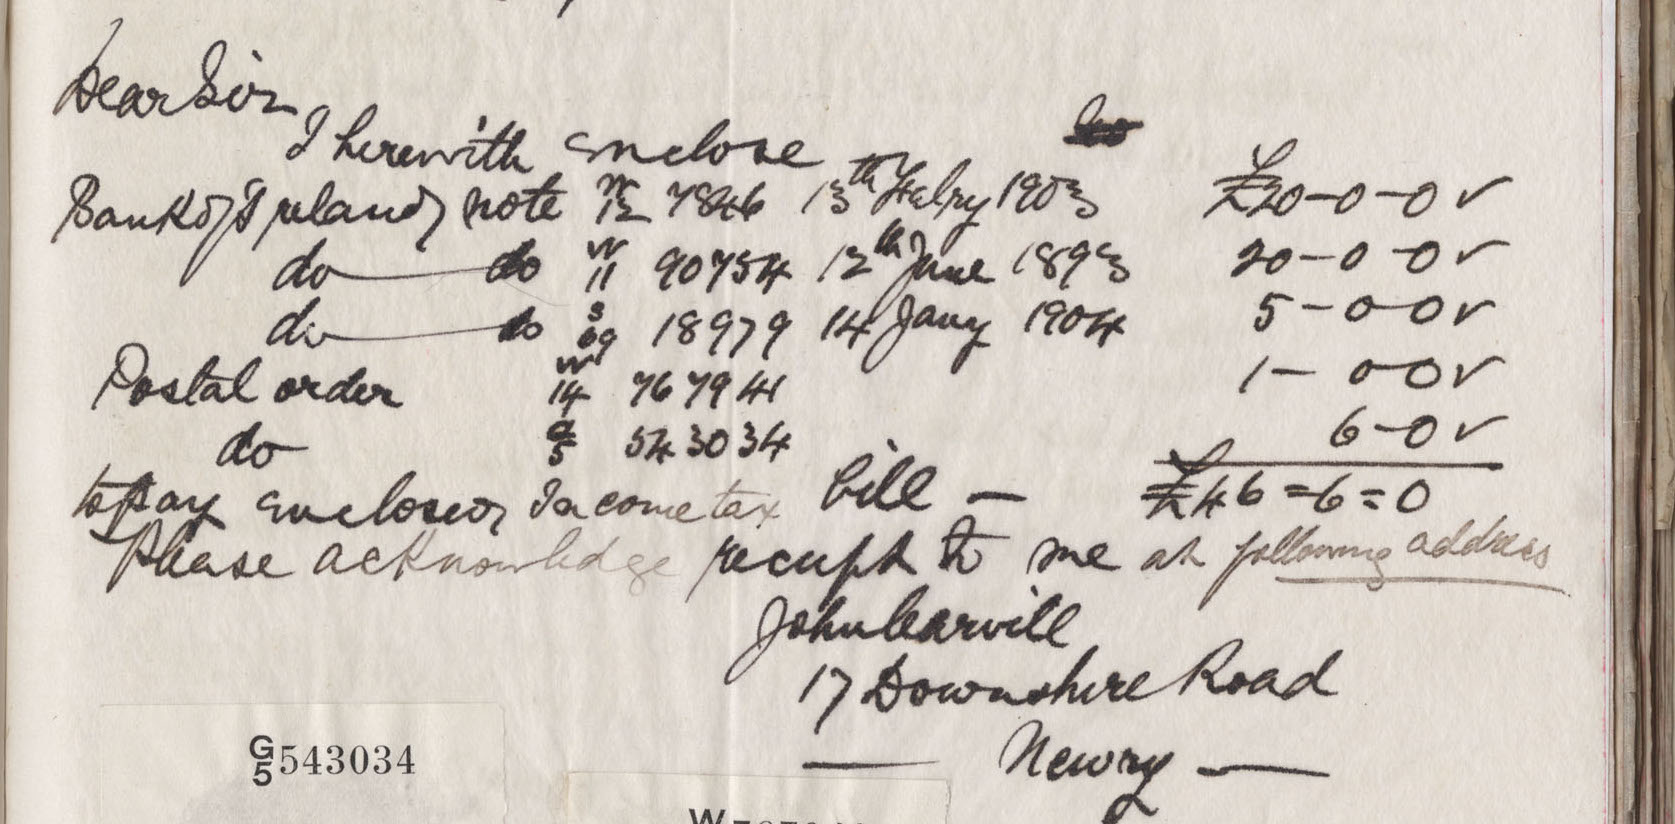 Dear Sir
I herewith enclose
Bank of Ireland note W/12 7846 13th Febry 1903 £20-0-0 ✓
do do W/11 90754 12th June 1893 20-0-0 ✓
do do S/69 18979 14 Jany 1904 5-0-0 ✓
Postal order W/14 767941 1-0-0 ✓
do G/5 543034 6-0 ✓
to pay enclosed Income tax bill — £46=6=0
Please acknowledge receipt to me at following address
John Carvill
17 Downshire Road
Newry
G/5 543034